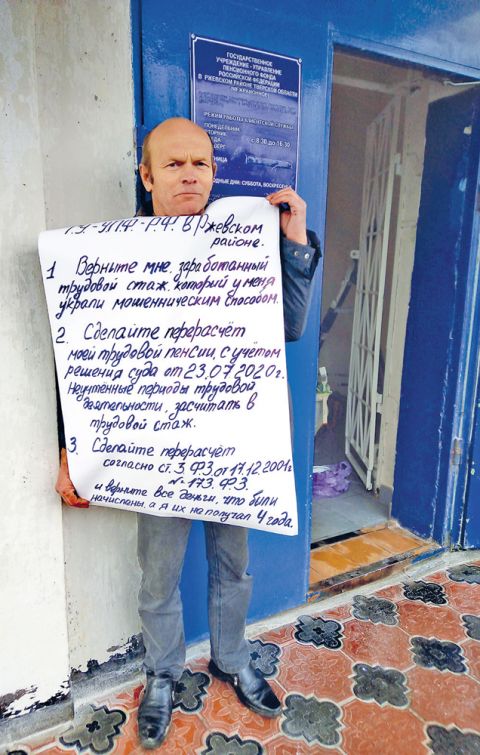 ГОСУДАРСТВЕННОЕ
УЧРЕЖДЕНИЕ - УПРАВЛЕНИЕ
ПЕНСИОННОГО ФОНДА
РОССИЙСКОЙ ФЕДЕРАЦИИ
В РЖЕВСКОМ РАЙОНЕ ТВЕРСКОЙ ОБЛАСТИ
РЕЖИМ РАБОТЫ КЛИЕНТСКОЙ СЛУЖБЫ
ПОНЕДЕЛЬНИК
ВТОРНИК
с 8-30 до 16-30
ДНИ: СУББОТА, ВОСКРЕСЕНЬЕ
Г.У-УПФ-Р.Ф. в Ржевском
районе.
1 Верните мне, заработанный
трудовой стаж, который у меня
украли мошенническим способом.
2. Сделайте перерасчёт
моей трудовой пенсии, с учётом
решения суда от 23.07.2020г.
Неучтённые периоды трудовой
деятельности, засчитать в
трудовой стаж.
3. Сделайте перерасчёт
согласно ст. 3 ФЗ от 17.12.2001г
№ 173. ФЗ.
и верните все деньги, что были
начислены, а я их не получал 4 года.